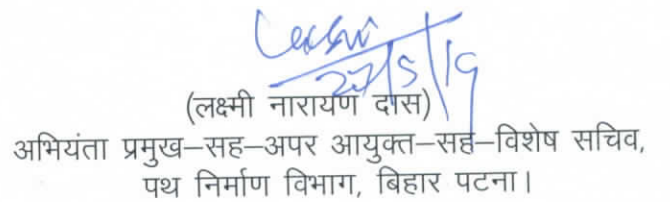 Laxmi
27/5/19
(लक्ष्मी नारायण दास)
अभियंता प्रमुख–सह–अपर आयुक्त–सह–विशेष सचिव,
पथ निर्माण विभाग, बिहार पटना।